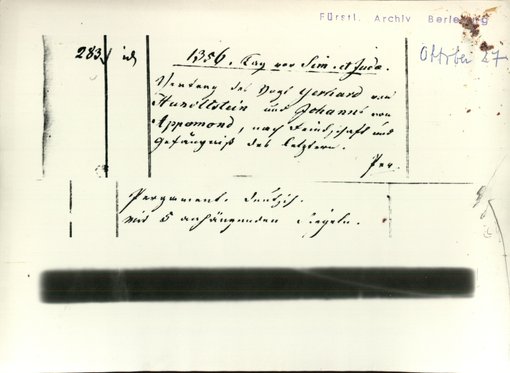 Fürstl. Archiv Berleburg
Oktober 27
283. id 1356. Tag vor Sim. et Juda.
Vertrag des Vogt Gerhard von
Hunoltstein und Johann von
Appomond, nach Feindschaft und
Gefängniß des letztern.
Per.
Pergament. Deutsch.
mit 5 anhängenden Siegeln.